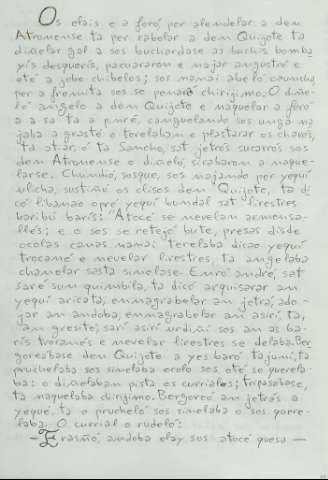 Os olais e a foró per alendelar a den
Atronense ta per rabelar a dem Quijote ta
diaelar gal a sos buchardase as barhis bomba
yis desquería, pacuararon e najar angustró e
oté a jebe chibelos; sos namai abelo caumcha
per a fremita sos se penará chirijimo. O diae-
ló angelo a dem Quijote e naquelar a foró
a a sa ta a pinré, canguelando sos unga na
jaba a grasté o torelaban e plastarar os chavós,
ta atiar, é ta Sancho, sat jetrós sucarrós sos
dem Atronense o diaeló, sirabaron a naque-
larse. Chumbó, sosque, sos najando per yequi
ulicha, sustiñó os clisos dem Quijote, ta di-
có libanao opré yequi bundal sat lirestres
baribú barís: "Atocé se nevelan armensa-
llés; e o sos se retejó bute, presas disde
ocolas canas namai terelaba dicao yequi
trocamé e nevelar lirestres, ta angelaba
chanelar sasta sinelase. Enró andré, sat
saré sum quimbila, ta dicó arquisarar am
yequi aricata, enmagrabelar am jetra, ado-
jar am andoba, enmagrabelar am asiri, ta,
am gresité, sarí asiri urdiai sos am as ba-
rís trorames e nevelar lirestres se delaba. Ber
goreabase dem Quijote a yes baró tajuni, ta
pruchelaba sos sinelaba ocolo sos oté se querela-
ba: o diaelaban pista os curriales; tripasabase,
ta naquelaba chirijimo. Bergoreó am jetrás a
yequé, ta o prucheló sos sinelaba o sos quere-
laba. O currial o rudeló:
—Erasñó, andoba olay sos atocé quesa —